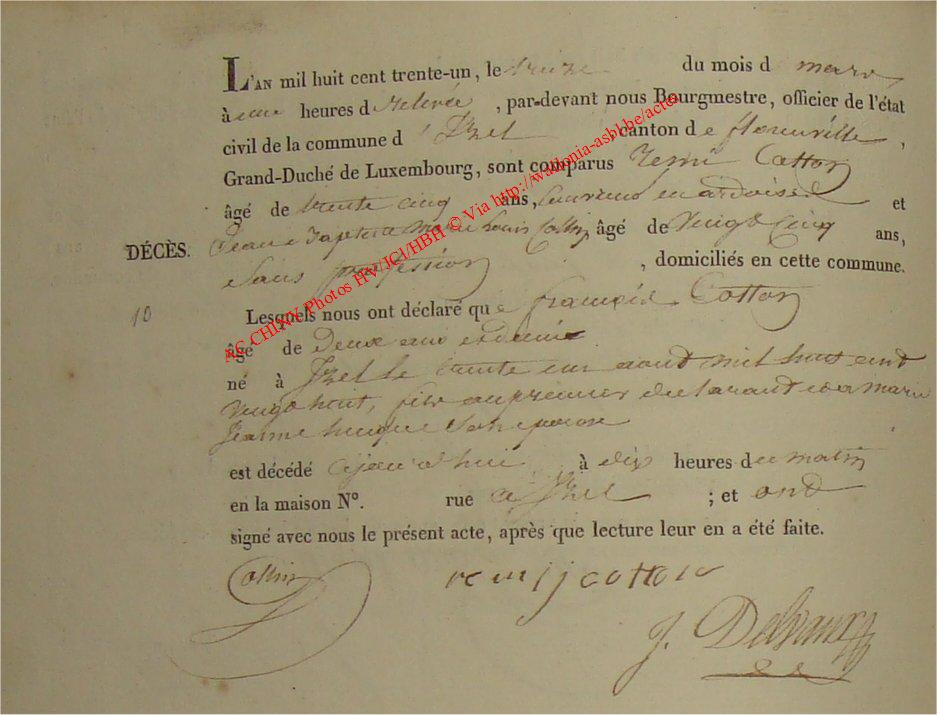 L'AN mil huit cent trente-un, le treize du mois d mars
à une heures d relevée, par-devant nous Bourgmestre, officier de l'état
civil de la commune d'Izel, canton de florenville,
Grand-Duché de Luxembourg, sont comparus remi Cotton
âgé de trente cinq ans, en ardoises et
DÉCÈS. Jean Baptiste Marie Louis Collin âgé de Vingt Cinq ans,
Sans profession, domiciliés en cette commune.
10 Lesquels nous ont déclaré que françois Cotton
âgé de Deux ans et demi
né à Izel le trente un aout mil huit cent
Vingt huit, fils au premier declarant et a marie
Jeanne Son epouse
est décédé cejourd'hui à dix heures du matin
en la maison N°. rue a Izel ; et ont
signé avec nous le présent acte, après que lecture leur en a été faite.
Collin remij cotton
J.
AC CHINY Photos HV/JCJ/HBH © Via http://wallonia-asbl.be/actes